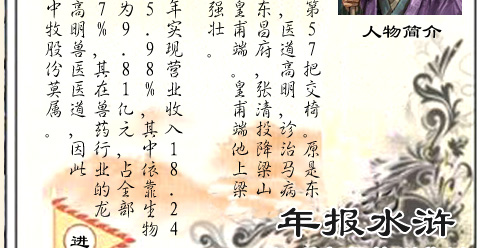 人物简介
第57把交椅。原是东
，医道高明，诊治马病
东昌府，张清投降梁山
皇甫端。皇甫端他上梁
强壮。
年实现营业收入18.24
5.98%，其中依靠生物
为9.81亿元，占全部
7%，其在兽药行业的龙
高明兽医医道，因此
中牧股份莫属。
年报水浒
进